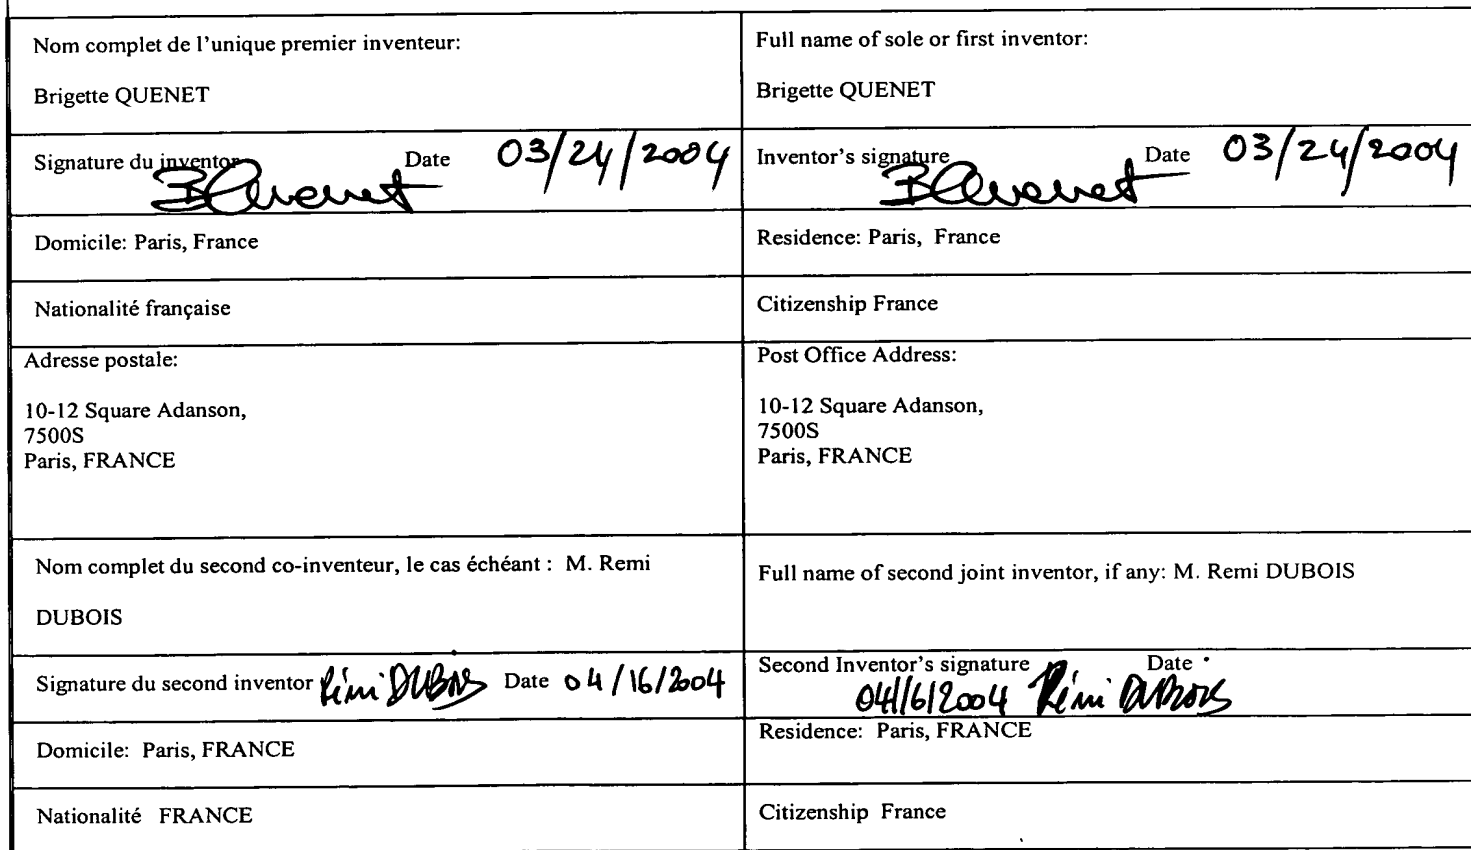 Nom complet de l'unique premier inventeur:
Brigette QUENET
Full name of sole or first inventor:
Brigette QUENET
Signature du inventor Date 03/24/2004
BQuenet
Inventor's signature Date 03/24/2004
BQuenet
Domicile: Paris, France
Residence: Paris, France
Nationalité française
Citizenship France
Adresse postale:
10-12 Square Adanson,
7500S
Paris, FRANCE
Post Office Address:
10-12 Square Adanson,
7500S
Paris, FRANCE
Nom complet du second co-inventeur, le cas échéant : M. Remi
DUBOIS
Full name of second joint inventor, if any: M. Remi DUBOIS
Signature du second inventor Rémi DUBOIS Date 04/16/2004
Second Inventor's signature Date
04/16/2004 Rémi DUBOIS
Domicile: Paris, FRANCE
Residence: Paris, FRANCE
Nationalité FRANCE
Citizenship France